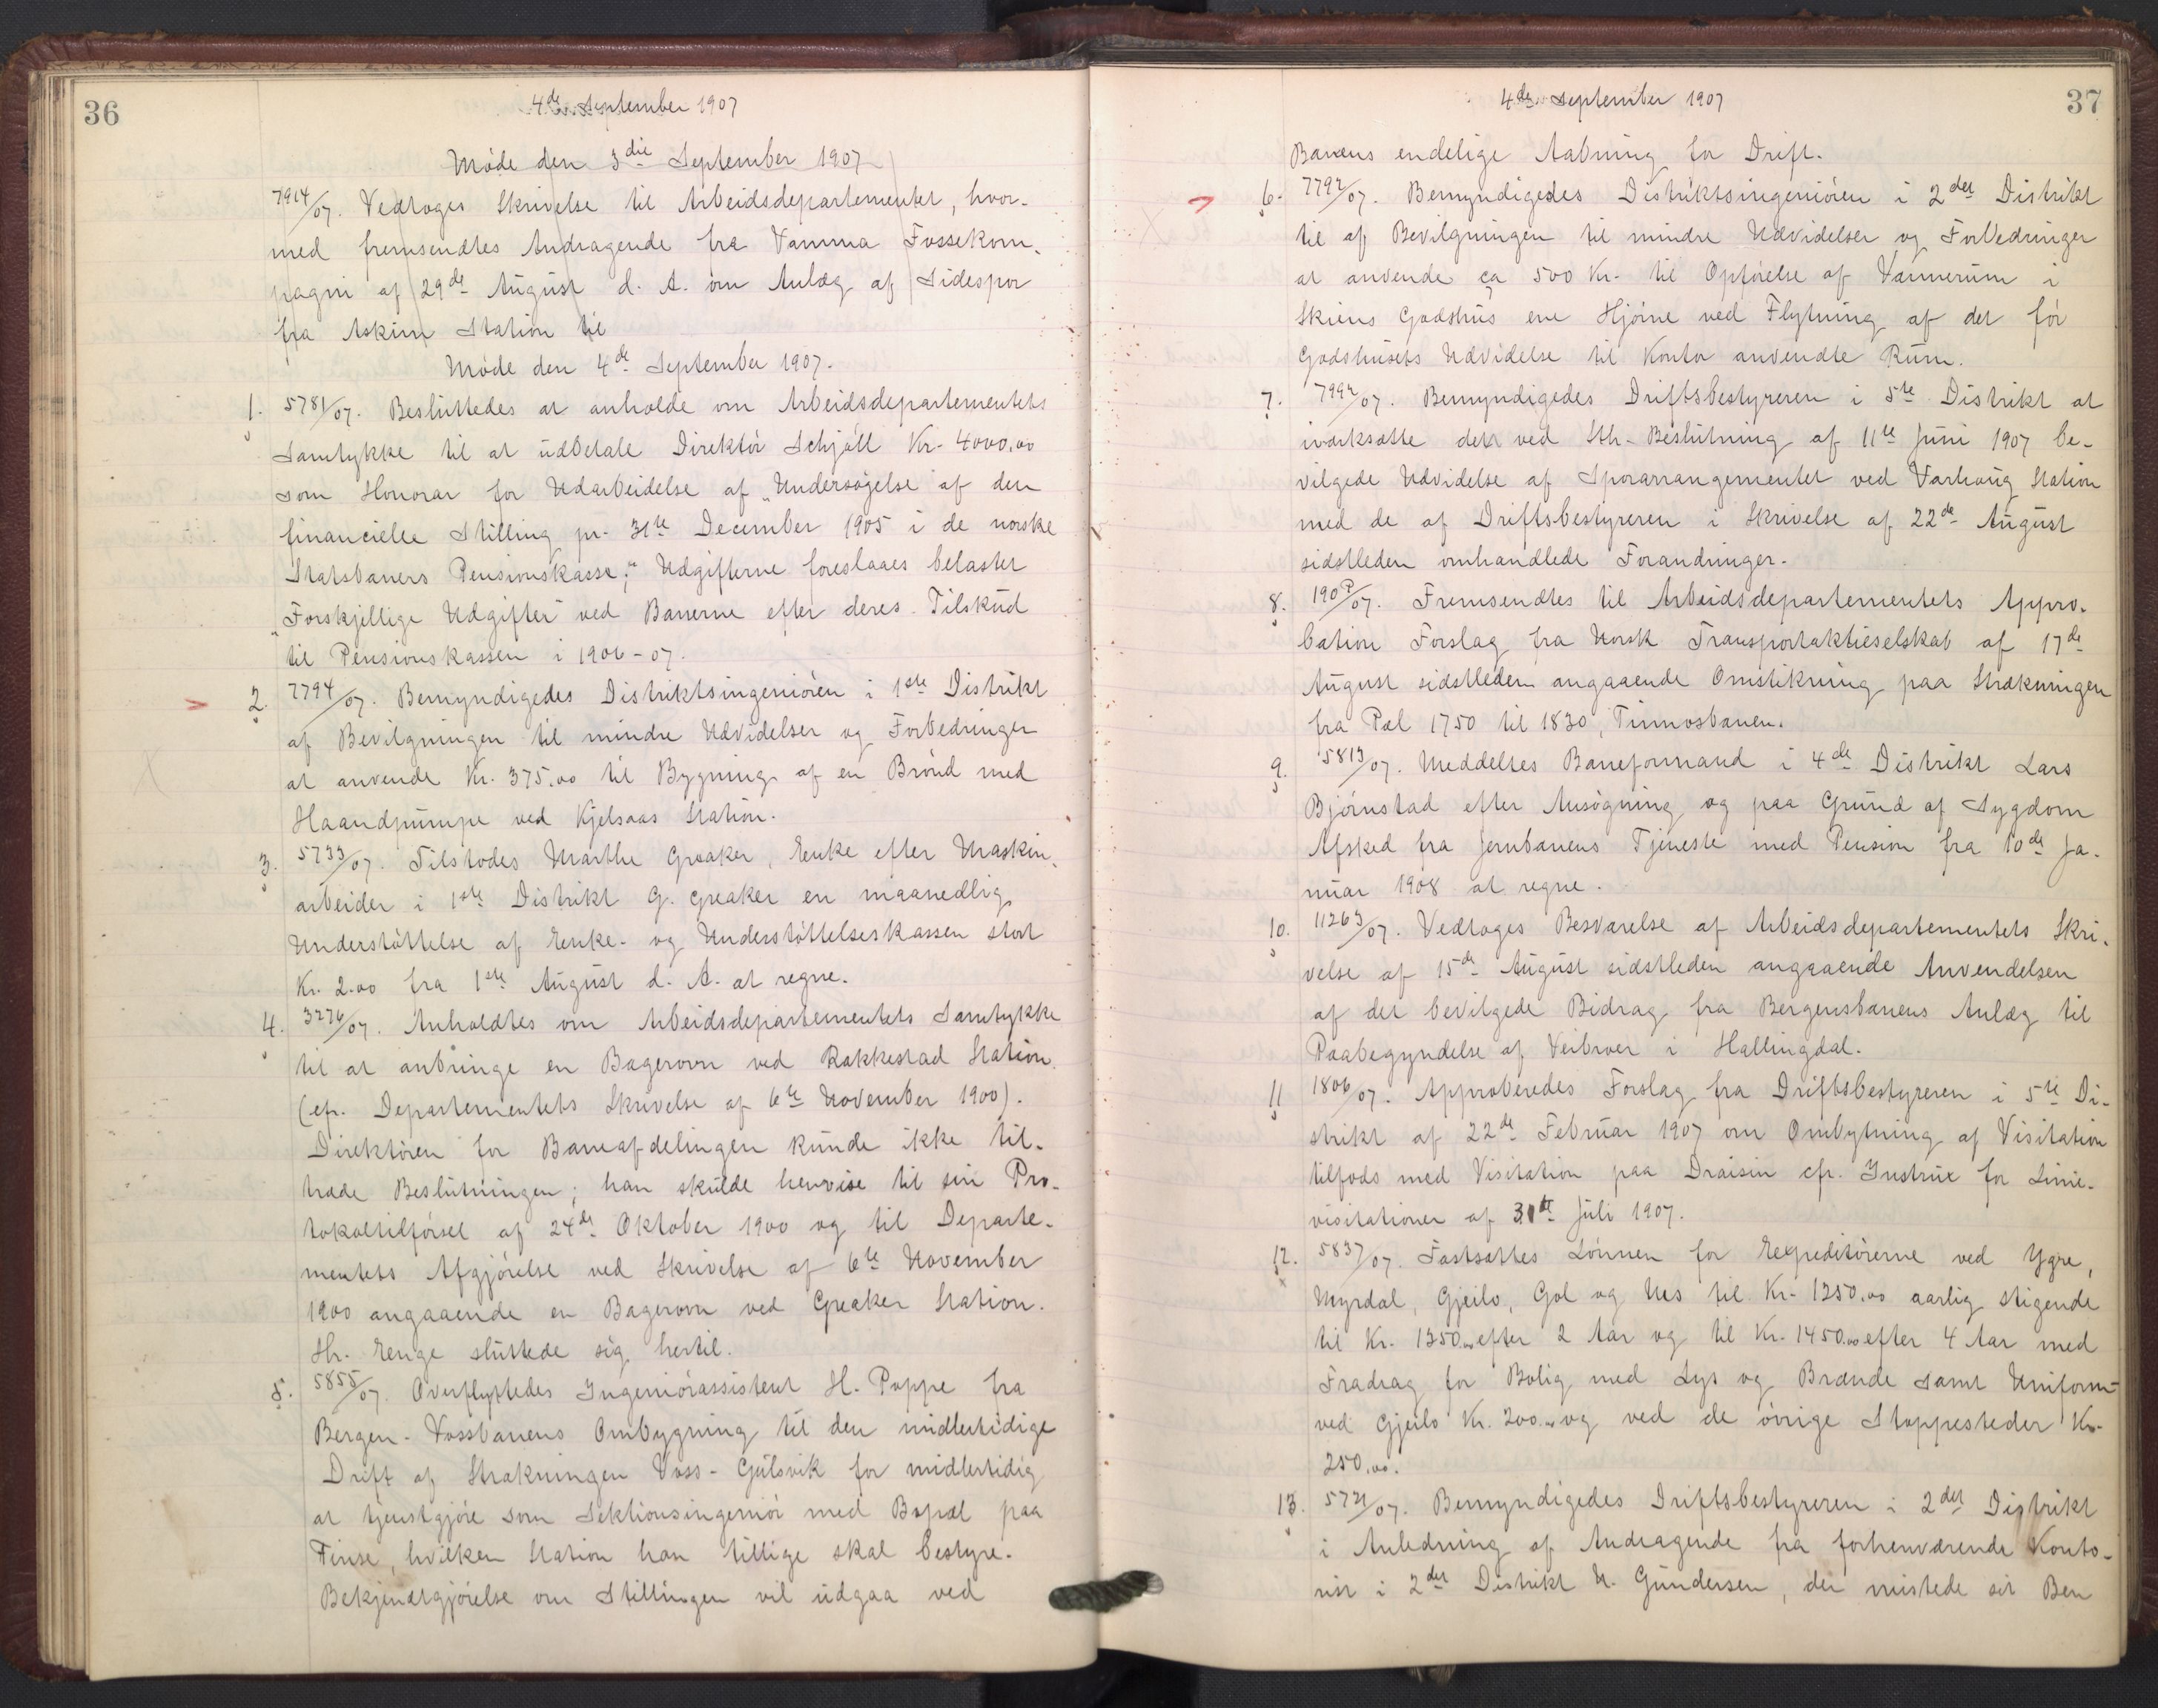 36
4de September 1907
Møde den 3die September 1907
7914/07. Vedtoges Skrivelse til Arbeidsdepartementet, hvor-
med fremsendtes Andragende fra Vamma Fossekom-
pagni af 29de August d. A. om Anlæg af Sidespor
fra Askim Station til
Møde den 4de September 1907.
1. 5781/07. Besluttedes at anholde om Arbeidsdepartementets
Samtykke til at udbetale Direktør Schjøll Kr. 4000.00
som Honorar for Udarbeidelse af „Undersøgelse af den
financielle Stilling pr. 31te December 1905 i de norske
Statsbaners Pensionskasse;“ Udgifterne foreslaaes belastet
„Forskjellige Udgifter“ ved Banerne efter deres Tilskud
til Pensionskassen i 1906-07.
2. 7794/07. Bemyndigedes Distriktsingeniøren i 1ste Distrikt
af Bevilgningen til mindre Udvidelser og Forbedringer
at anvende Kr. 375.00 til Bygning af en Brønd med
Haandpumpe ved Kjelsaas Station.
3. 5733/07. Tilstodes Marthe Greaker, Enke efter Maskin-
arbeider i 1ste Distrikt G. Greaker en maanedlig
Understøttelse af Enke- og Understøttelseskassen stort
Kr. 2.00 fra 1ste August d. A. at regne.
4. 3276/07. Anholdtes om Arbeidsdepartementets Samtykke
til at anbringe en Bagerovn ved Rakkestad Station
(cfr. Departementets Skrivelse af 6te November 1900).
Direktøren for Baneafdelingen kunde ikke til-
træde Beslutningen; han skulde henvise til sin Pro-
tokoltilførsel af 24de Oktober 1900 og til Departe-
mentets Afgjørelse ved Skrivelse af 6te November
1900 angaaende en Bagerovn ved Greaker Station.
Hr. Enge sluttede sig hertil.
5. 5855/07. Overflyttedes Ingeniørassistent H. Poppe fra
Bergen-Vossbanens Ombygning til den midlertidige
Drift af Strækningen Voss-Gulsvik for midlertidig
at tjenstgjøre som Sektionsingeniør med Bopæl paa
Finse, hvilken Station han tillige skal bestyre.
Bekjendtgjørelse om Stillingen vil udgaa ved
37
4de September 1907
Banens endelige Aabning for Drift.
6. 7792/07. Bemyndigedes Distriktsingeniøren i 2det Distrikt
til af Bevilgningen til mindre Udvidelser og Forbedringer
at anvende ca 500 Kr. til Opførelse af Varmerum i
Skiens Godshus ene Hjørne ved Flytning af det før
Godshusets Udvidelse til Kontor anvendte Rum.
7. 7992/07. Bemyndigedes Driftsbestyreren i 5te Distrikt at
iværksætte den ved Sth- Beslutning af 11te Juni 1907 be-
vilgede Udvidelse af Sporarrangementet ved Varhaug Station
med de af Driftsbestyreren i Skrivelse af 22de August
sidstleden omhandlede Forandringer.
8. 190P/07. Fremsendtes til Arbeidsdepartementets Appro-
bation Forslag fra Norsk Transportaktieselskab af 17de
August sidstleden angaaende Omstikning paa Strækningen
fra Pæl 1750 til 1830, Tinnosbanen.
9. 5813/07. Meddeltes Baneformand i 4de Distrikt Lars
Bjørnstad efter Ansøgning og paa Grund af Sygdom
Afsked fra Jernbanens Tjeneste med Pension fra 10de Ja-
nuar 1908 at regne.
10. 11263/07. Vedtoges Besvarelse af Arbeidsdepartementets Skri-
velse af 15de August sidstleden angaaende Anvendelsen
af det bevilgede Bidrag fra Bergensbanens Anlæg til
Paabegyndelse af Veibroer i Hallingdal.
11 1806/07. Approberedes Forslag fra Driftsbestyreren i 5te Di-
strikt af 22de Februar 1907 om Ombytning af Visitation
tilfods med Visitation paa Draisin cfr. Instrux for Linie-
visitationer af 31te Juli 1907.
12. 5837/07. Fastsattes Lønnen for Expeditørerne ved Ygre,
Myrdal, Gjeilo, Gol og Nes til Kr. 1250.00 aarlig stigende
til Kr. 1350.00 efter 2 Aar og til Kr. 1450.00 efter 4 Aar med
Fradrag for Bolig med Lys og Brænde samt Uniform-
ved Gjeilo Kr. 200.00 og ved de øvrige Stoppesteder Kr.
250.00.
13. 5721/07. Bemyndigedes Driftsbestyreren i 2det Distrikt
i Anledning af Andragende fra forhenværende Konto-
rist i 2det Distrikt N. Gundersen, der mistede sit Ben